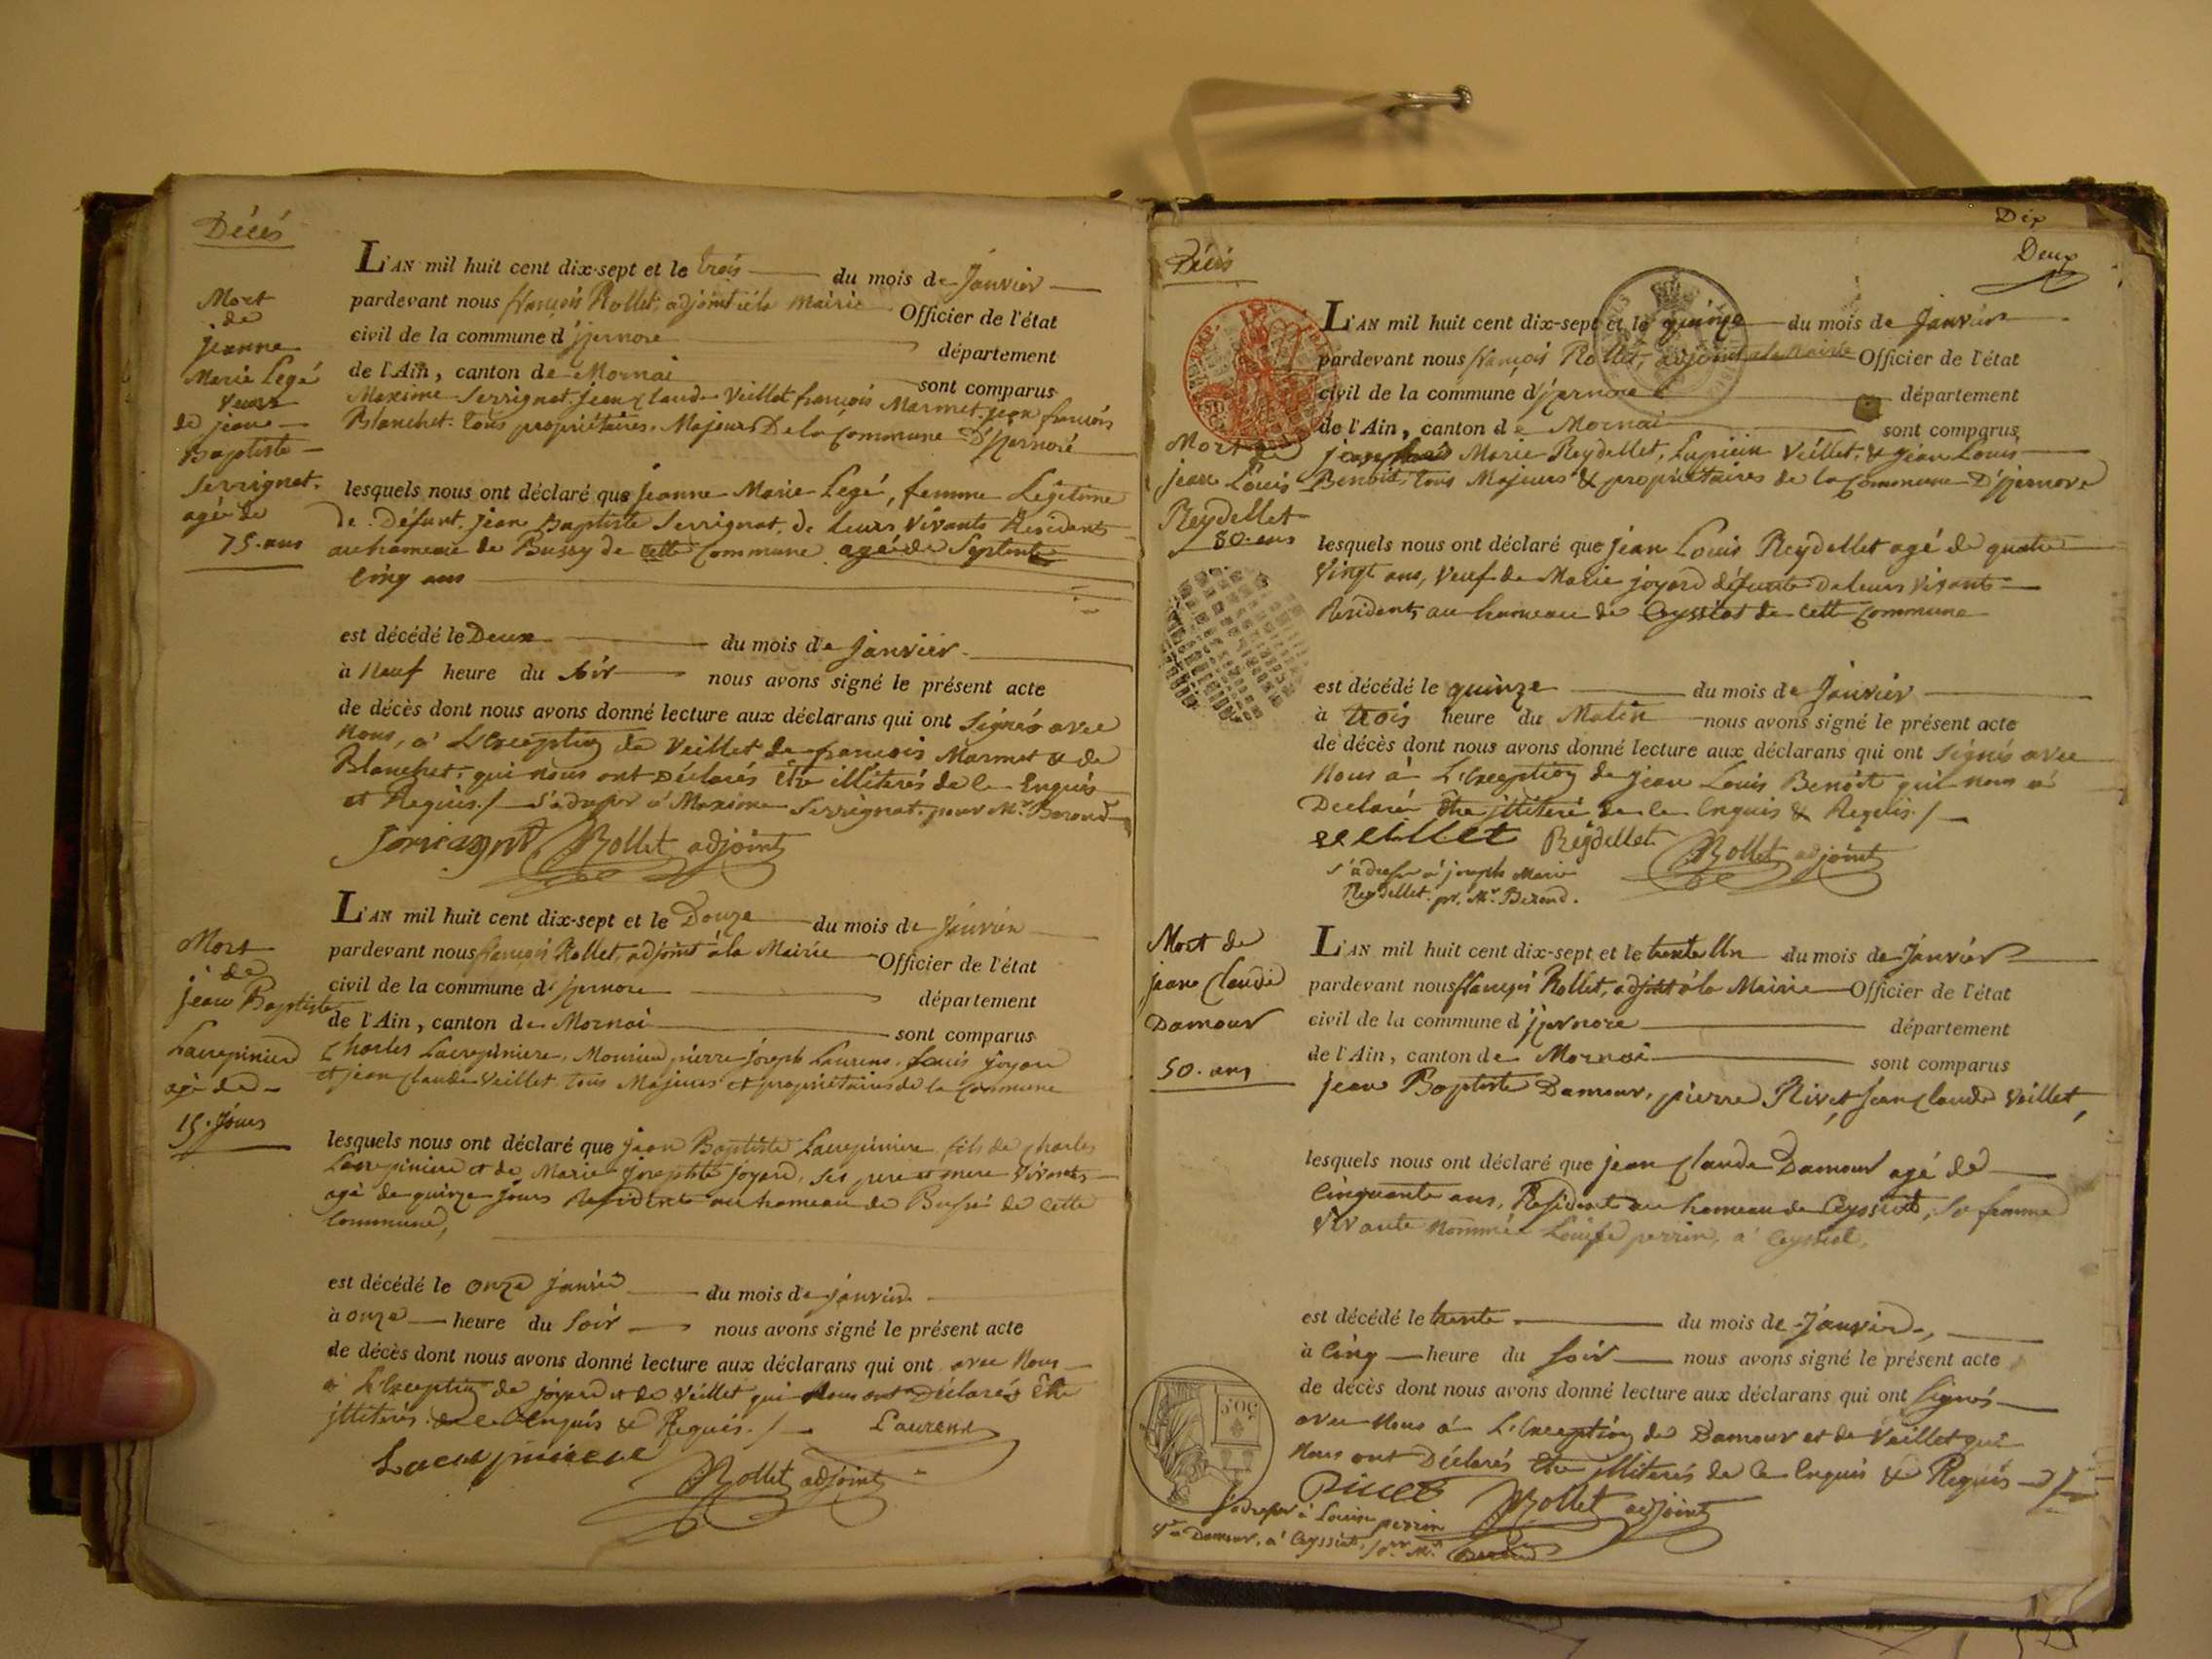 Décés
Mort
de
jeanne
Marie Legé
veuve
de jean
Baptiste
Serrignat.
agé de
75. ans
L'AN mil huit cent dix-sept et le trois du mois de Janvier
pardevant nous françois Rollet, adjoint à la Mairie Officier de l'état
civil de la commune d'jzernore département
de l'Ain, canton de Mornai sont comparus
Maxime Serrignat, jean Claude Veillet françois Marmet. jean françois
Blanchet. tous propriétaires. Majeurs De la Commune D'jzernore
lesquels nous ont déclaré que jeanne Marie Legé, femme Légitime
de Défunt. jean Baptiste Serrignat. de leurs Vivants Residents
au hameau de Bussy de cette Commune agée de Septente
Cinq ans
est décédé le Deux du mois de Janvier
à Neuf heure du soir nous avons signé le présent acte
de décès dont nous avons donné lecture aux déclarans qui ont Signés avec
Nous, à L'Exception de Veillet de françois Marmet & de
Blanchet, qui nous ont Déclarés être illiterés de ce Enquis
et Requis./ s'adresser à Maxime Serrignat. pour Mr. Berond
Rollet adjoint
Mort
de
jean Baptiste
Lacrepiniere
agé de
15. Jours
L'AN mil huit cent dix-sept et le Douze du mois de Janvier
pardevant nous françois Rollet, adjoint à la Mairie Officier de l'état
civil de la commune d'jzernore département
de l'Ain, canton de Mornai sont comparus
Charles Lacrepiniere, Monsieur pierre joseph Laurens. Louis joyard
et jean Claude Veillet. tous Majeurs et propriétaires de la Commune
lesquels nous ont déclaré que jean Baptiste Lacrepiniere fils de Charles
Lacrepiniere et de Marie josephte joyard, ses pere et mere Vivants
agé de quinze jours Residents au hameau de Bussi de cette
Commune,
est décédé le onze janvier du mois de janvier
à onze heure du soir nous avons signé le présent acte
de décès dont nous avons donné lecture aux déclarans qui ont avec Nous
à L'Exception de joyard et de Veillet qui Nous ont Déclarés être
jlliterés de ce Enquis & Requis./ Laurent
Lacrepiniere
Rollet adjoint
Dix
Deux
Décés
Mort de
jean Louis
Reydellet
80. ans
L'AN mil huit cent dix-sept et le quinze du mois de Janvier
pardevant nous françois Rollet, adjoint à la Mairie Officier de l'état
civil de la commune d'jzernore département
de l'Ain, canton de Mornai sont comparus
Marie Reydellet, Lupicin Veillet, & jean Louis
Benoit, tous Majeurs & propriétaires de la Commune D'jzernore
lesquels nous ont déclaré que jean Louis Reydellet agé de quatre
Vingt ans, Veuf de Marie joyard défunte De leurs Vivants
Résidents au hameau de Ceyssiat de cette Commune
est décédé le quinze du mois de Janvier
à trois heure du Matin nous avons signé le présent acte
de décès dont nous avons donné lecture aux déclarans qui ont signés avec
Nous à L'Exception de jean Louis Benoit qui nous a
Declaré être jlliteré de ce Enquis & Requis./
veillet Reydellet Rollet adjoint
s'adresser à joseph Marie
Reydellet. pr. Mr. Berond.
Mort de
jean Claude
Damour
50. ans
L'AN mil huit cent dix-sept et le trente Un du mois de Janvier
pardevant nous françois Rollet, adjoint à la Mairie Officier de l'état
civil de la commune d'jzernore département
de l'Ain, canton de Mornai sont comparus
jean Baptiste Damour, pierre Rivet, Jean Claude Veillet,
lesquels nous ont déclaré que jean Claude Damour agé de
Cinquante ans, Résident au hameau de Ceyssiat, sa femme
Vivante Nommée Louise perrin, à Ceyssiat,
est décédé le trente du mois de Janvier
à Cinq heure du soir nous avons signé le présent acte
de décès dont nous avons donné lecture aux déclarans qui ont Signés
avec Nous à L'Exception de Damour et de Veillet qui
Nous ont Déclarés être jlliterés de ce Enquis & Requis
50c.
Rollet adjoint
s'adresser à Louise perrin
Ve Damour, à Ceyssiat, pr. Mr. Berond